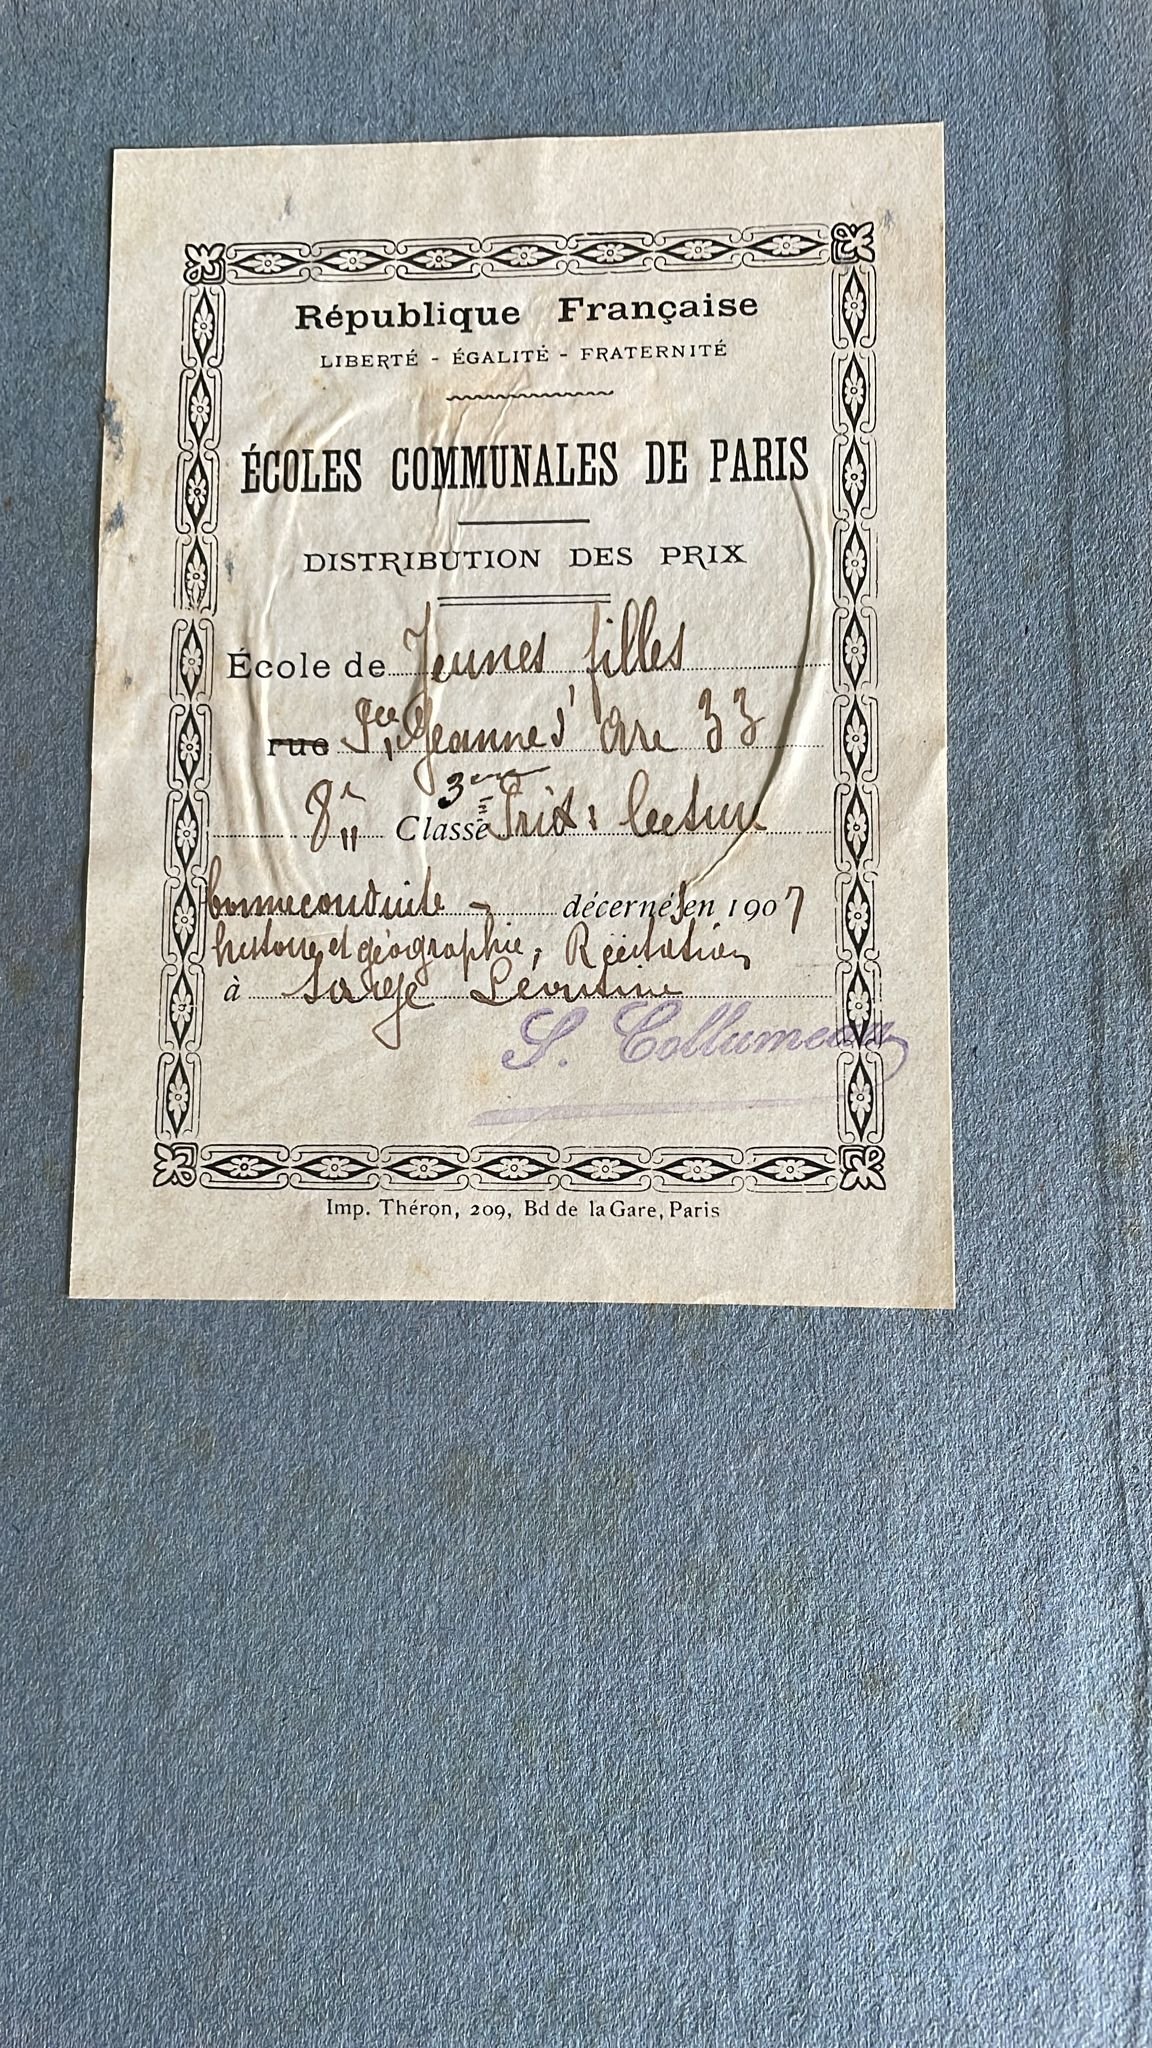 République Française
LIBERTÉ - ÉGALITÉ - FRATERNITÉ
ÉCOLES COMMUNALES DE PARIS
DISTRIBUTION DES PRIX
École de Jeunes filles
rue Jeanne d'Arc 33
8e Classe 3eme Prix: lecture
bonne conduite - décernés en 1907
histoire et géographie, Récitation
à Léontine
S. Collumeau
Imp. Théron, 209, Bd de la Gare, Paris